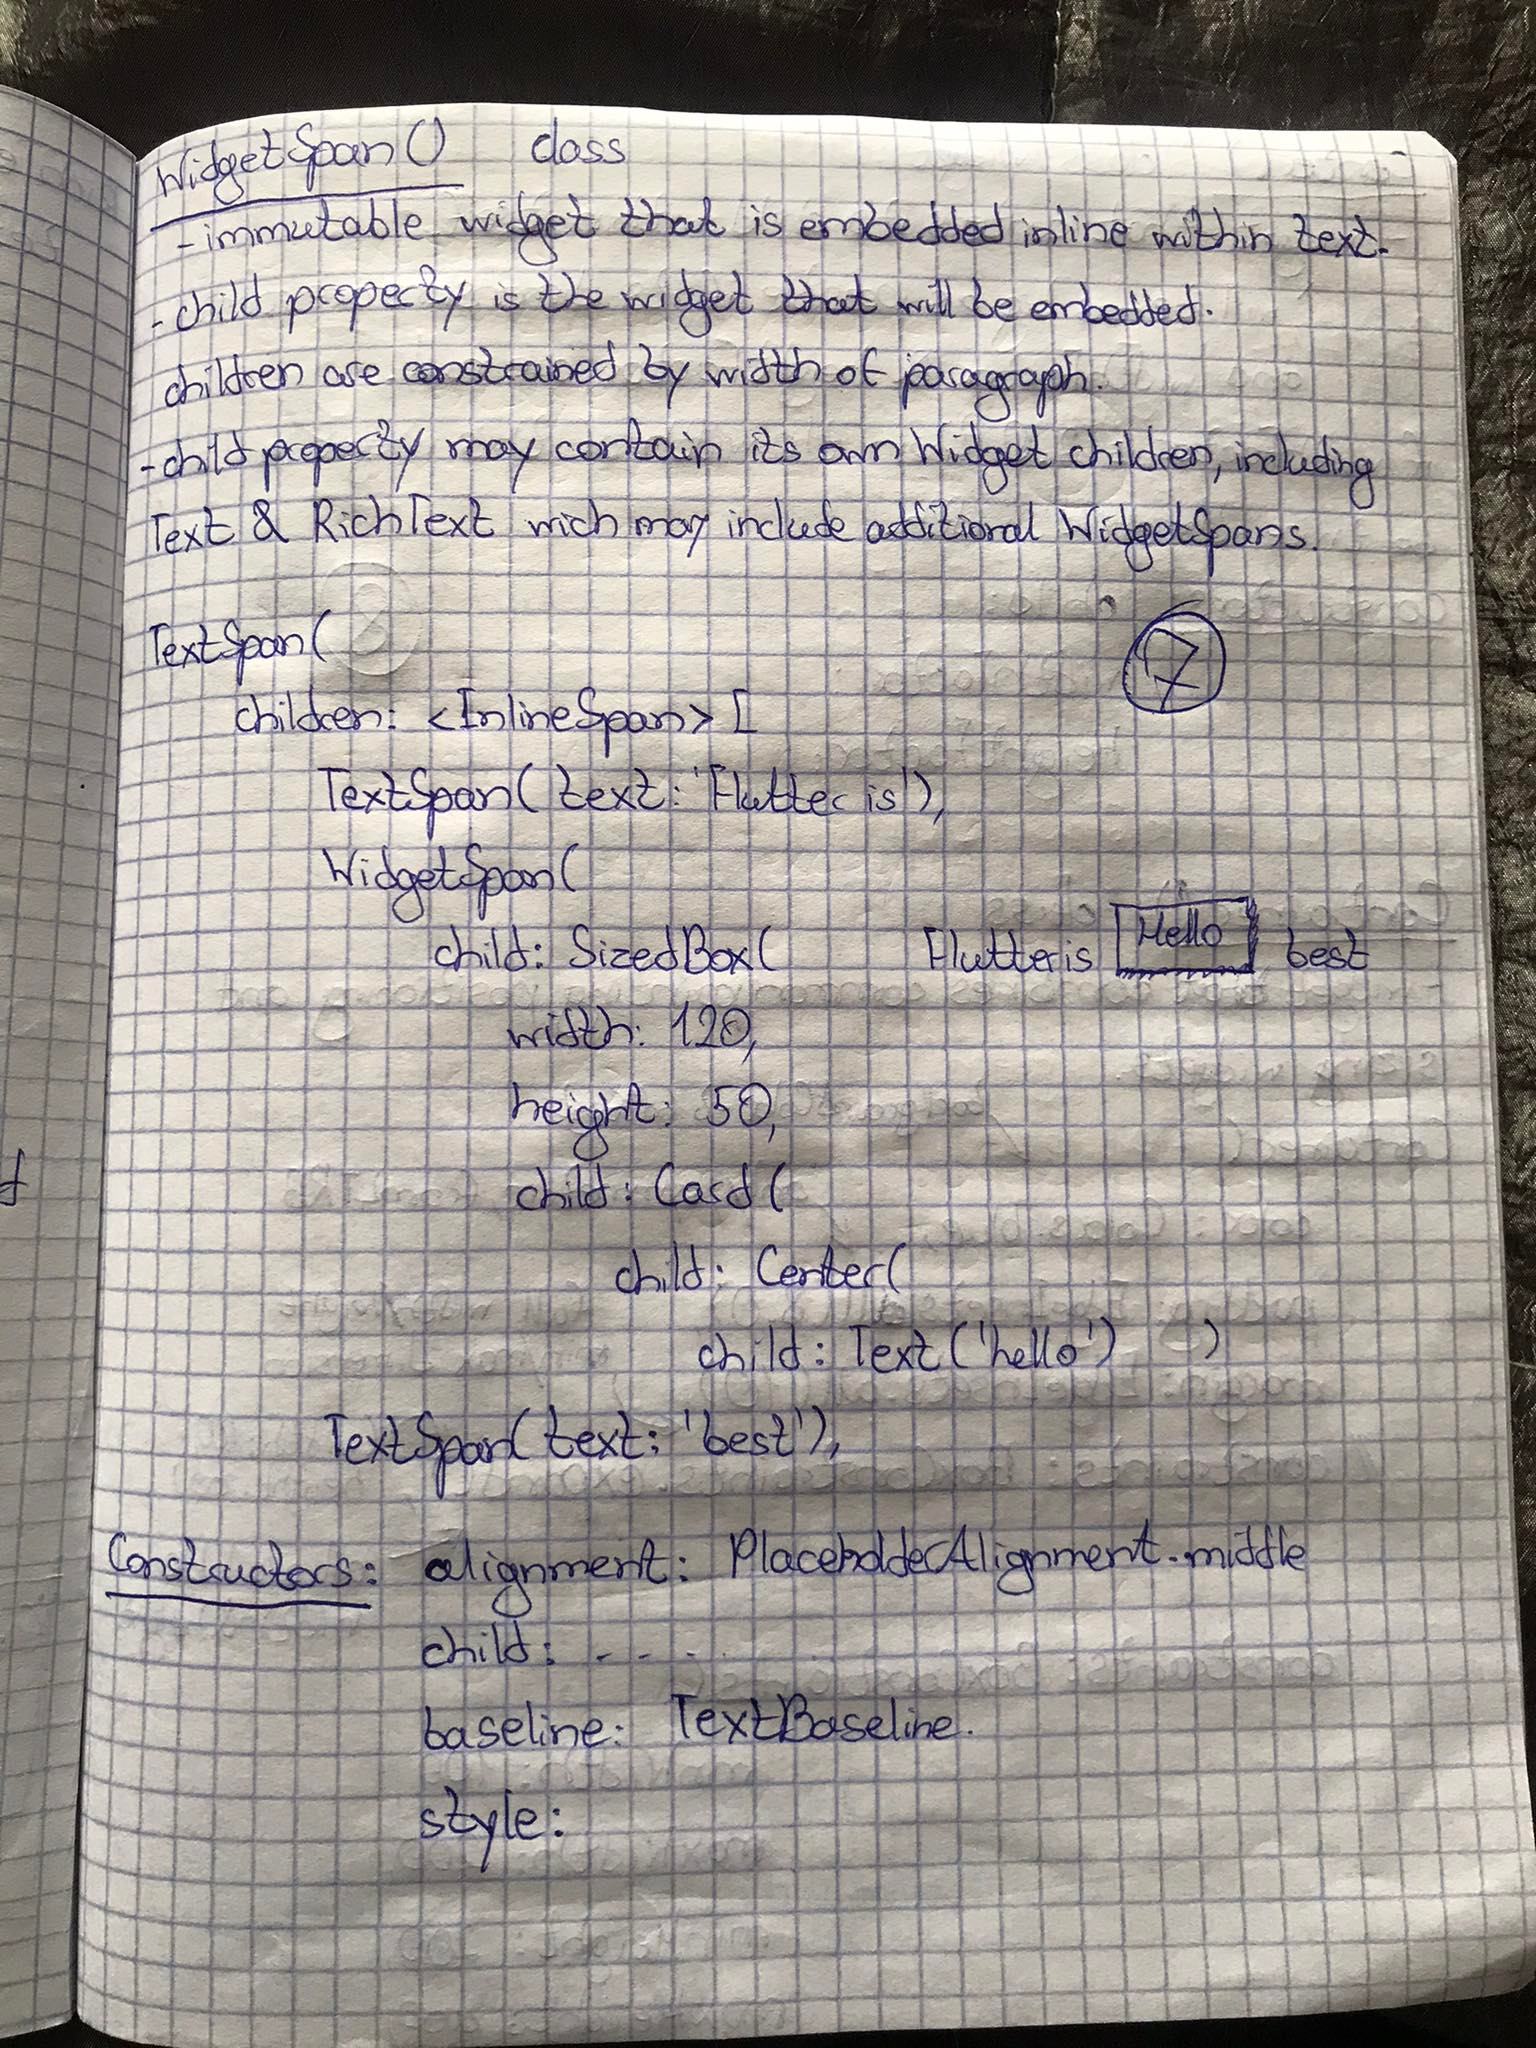 WidgetSpan() class
- immutable widget that is embedded inline within text.
- child property is the widget that will be embedded.
children are constrained by width of paragraph.
- child property may contain its own Widget children, including
Text & RichText wich may include additional WidgetSpans.
TextSpan(
7
children: <InlineSpan> [
TextSpan( text: 'Flutter is'),
WidgetSpan(
child: SizedBox( Flutter is Hello best
width: 120,
height: 50,
child: Card (
child: Center(
child: Text ('hello') )
TextSpan( text: 'best'),
Constructors: alignment: PlaceholderAlignment.middle
child: - - - .
baseline: TextBaseline.
style: